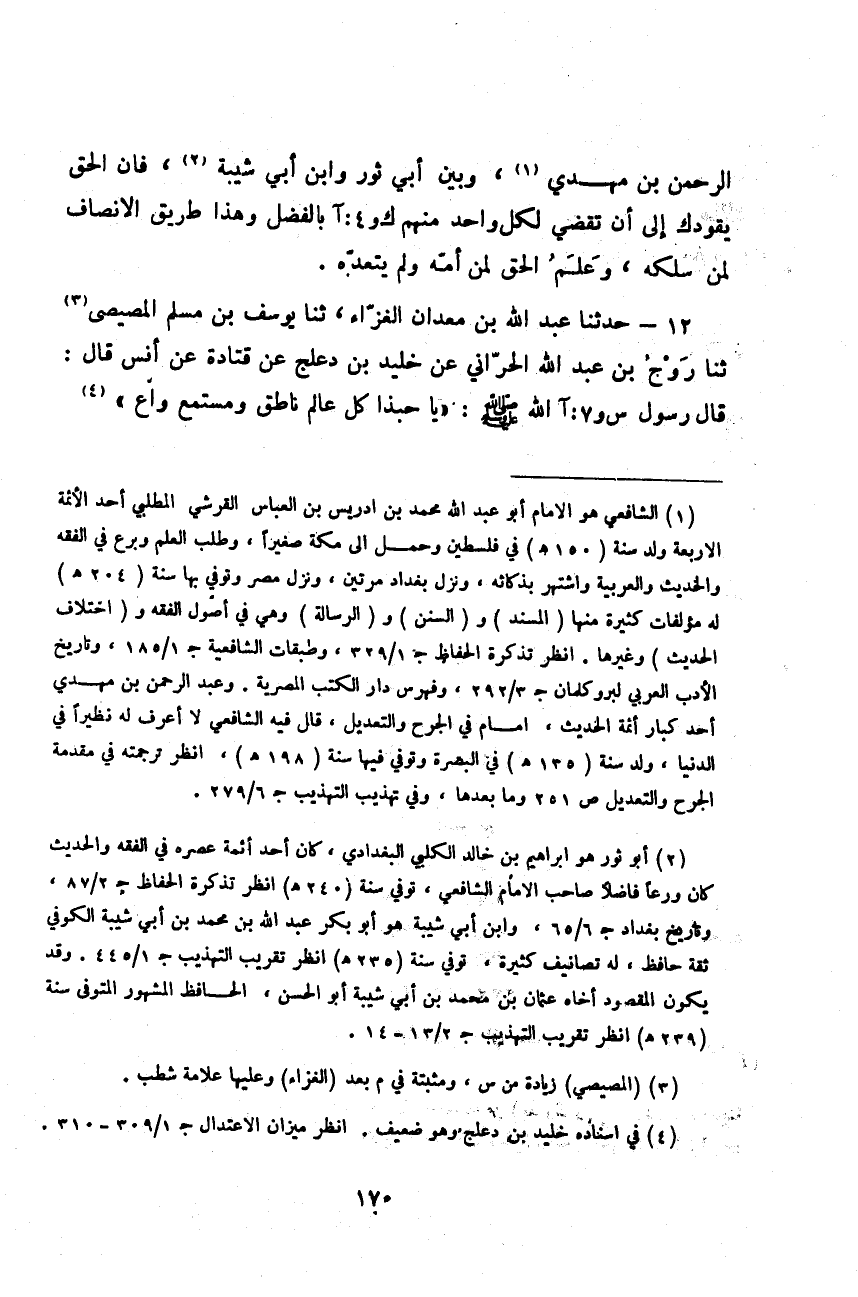 الرحمن بن مهـــدي (١) ، وبين أبي ثور وابن أبي شيبة (٢) ، فان الحق
يقودك إلى أن تقضي لكل واحد منهم ك و٤:آ بالفضل وهذا طريق الانصاف
لمن سلكه ، وَعلَـمُ الحق لمن أمّه ولم يتعدّه .
١٢ – حدثنا عبد الله بن معدان الغزّاء ، ثنا يوسف بن مسلم المصيصي(٣)
ثنا رَوْحُ بن عبد الله الحرّاني عن خليد بن دعلج عن قتادة عن أنس قال :
قال رسول س و٧:آ الله ﷺ : «يا حبذا كل عالم ناطق ومستمع واع » (٤)
(١) الشافعي هو الامام أبو عبد الله محمد بن ادريس بن العباس القرشي المطلبي أحد الأئمة
الاربعة ولد سنة ( ١٥٠ ه ) في فلسطين وحمــل الى مكة صغيراً ، وطلب العلم وبرع في الفقه
والحديث والعربية واشتهر بذكائه ، ونزل بغداد مرتين ، ونزل مصر وتوفي بها سنة ( ٢٠٤ ه )
له مؤلفات كثيرة منها ( المسند ) و ( السنن ) و ( الرسالة ) وهي في أصول الفقه و ( اختلاف
الحديث ) وغيرها . انظر تذكرة الحفاظ ج ٣٢٩/١ ، وطبقات الشافعية ج ١٨٥/١ ، وتاريخ
الأدب العربي لبروكلمان ج ٢٩٢/٣ ، وفهرس دار الكتب المصرية . وعبد الرحمن بن مهـدي
أحد كبار أئمة الحديث ، امــام في الجرح والتعديل ، قال فيه الشافعي لا أعرف له نظيراً في
الدنيا ، ولد سنة ( ١٣٥ ه ) في البصرة وتوفي فيها سنة ( ١٩٨ ه ) ، انظر ترجمته في مقدمة
الجرح والتعديل ص ٢٥١ وما بعدها ، وفي تهذيب التهذيب ج ٢٧٩/٦ .
(٢) أبو ثور هو ابراهيم بن خالد الكلبي البغدادي ، كان أحد أئمة عصره في الفقه والحديث
كان ورعاً فاضلاً صاحب الامام الشافعي ، توفي سنة (٢٤٠ ه) انظر تذكرة الحفاظ ج ٨٧/٢ ،
وتاريخ بغداد ج ٦٥/٦ ، وابن أبي شيبة هو أبو بكر عبد الله بن محمد بن أبي شيبة الكوفي
ثقة حافظ ، له تصانيف كثيرة ، توفي سنة (٢٣٥ ه) انظر تقريب التهذيب ج ٤٤٥/١ . وقد
يكون المقصود أخاه عثمان بن محمد بن أبي شيبة أبو الحسن ، الحــافظ المشهور المتوفى سنة
(٢٣٩ ه) انظر تقريب التهذيب ج ١٣/٢ – ١٤ .
(٣) (المصيصي) زيادة من س ، ومثبتة في م بعد (الغزاء) وعليها علامة شطب .
(٤) في اسناده خليد بن دعلج وهو ضعيف . انظر ميزان الاعتدال ج ٣٠٩/١ – ٣١٠ .
١٧٠